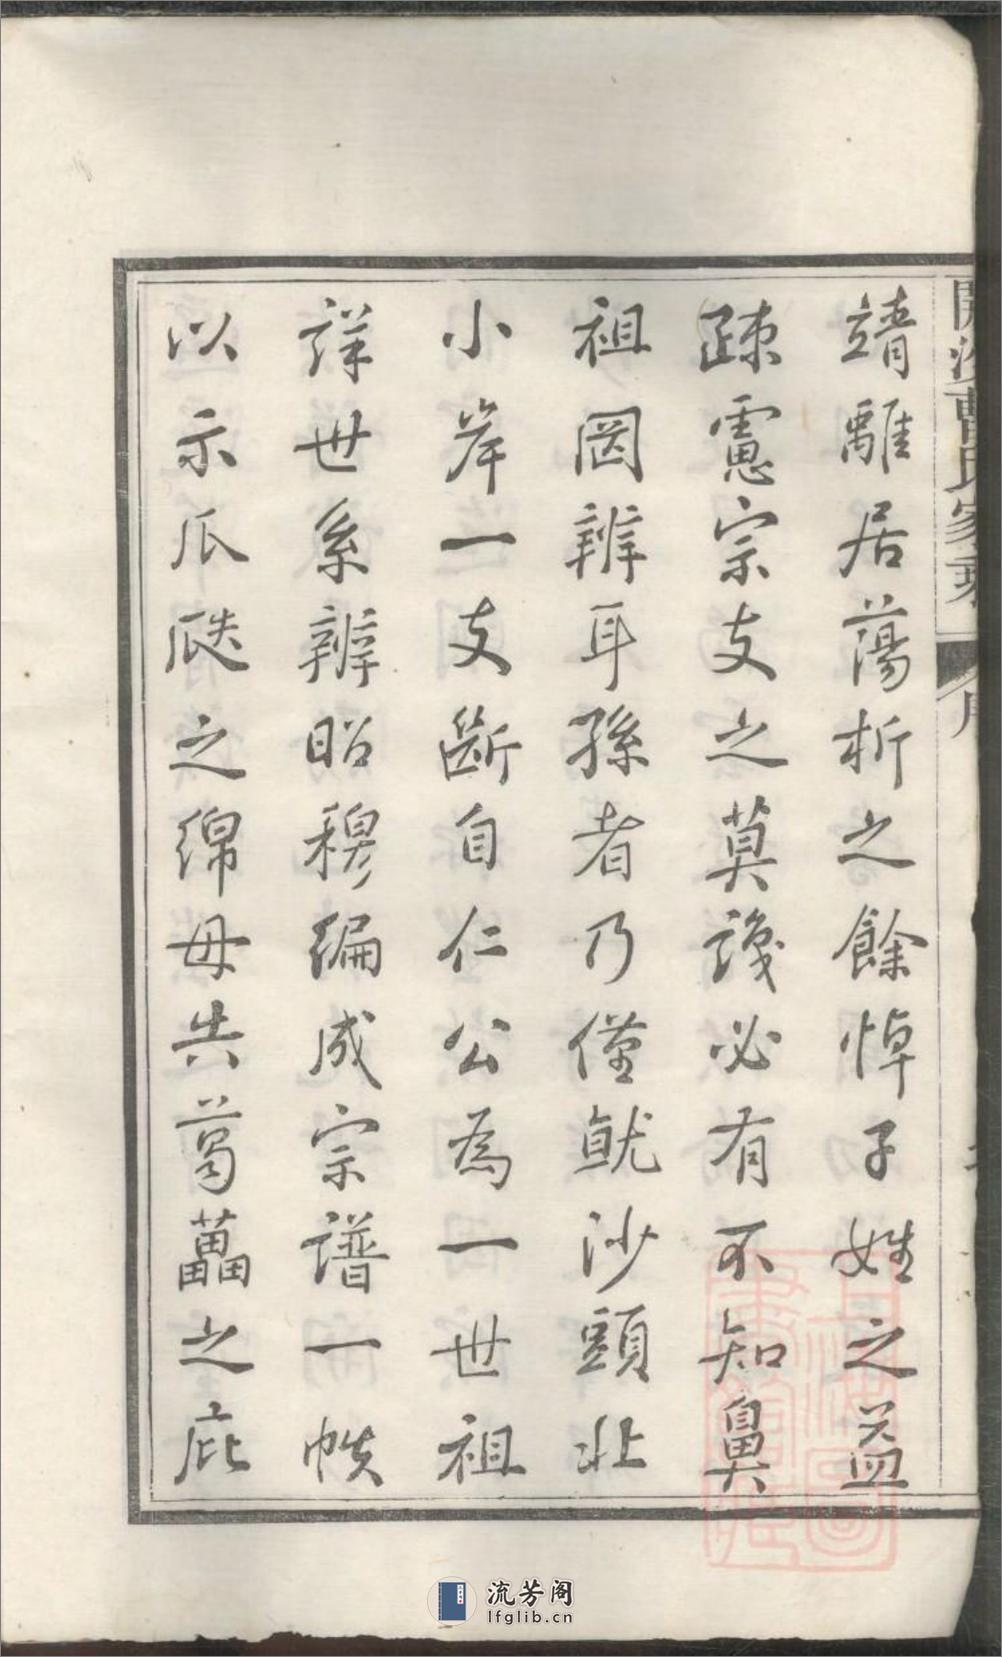 開沙曹氏家乘
序
靖離居蕩析之餘悼子姓之益
疎慮宗支之莫識必有不知鼻
祖罔辨耳孫者乃僅就沙頭北
小岸一支斷自仁公為一世祖
詳世系辨昭穆編成宗譜一帙
以示瓜瓞之綿毋失葛藟之庇
流芳阁
lfglib.cn